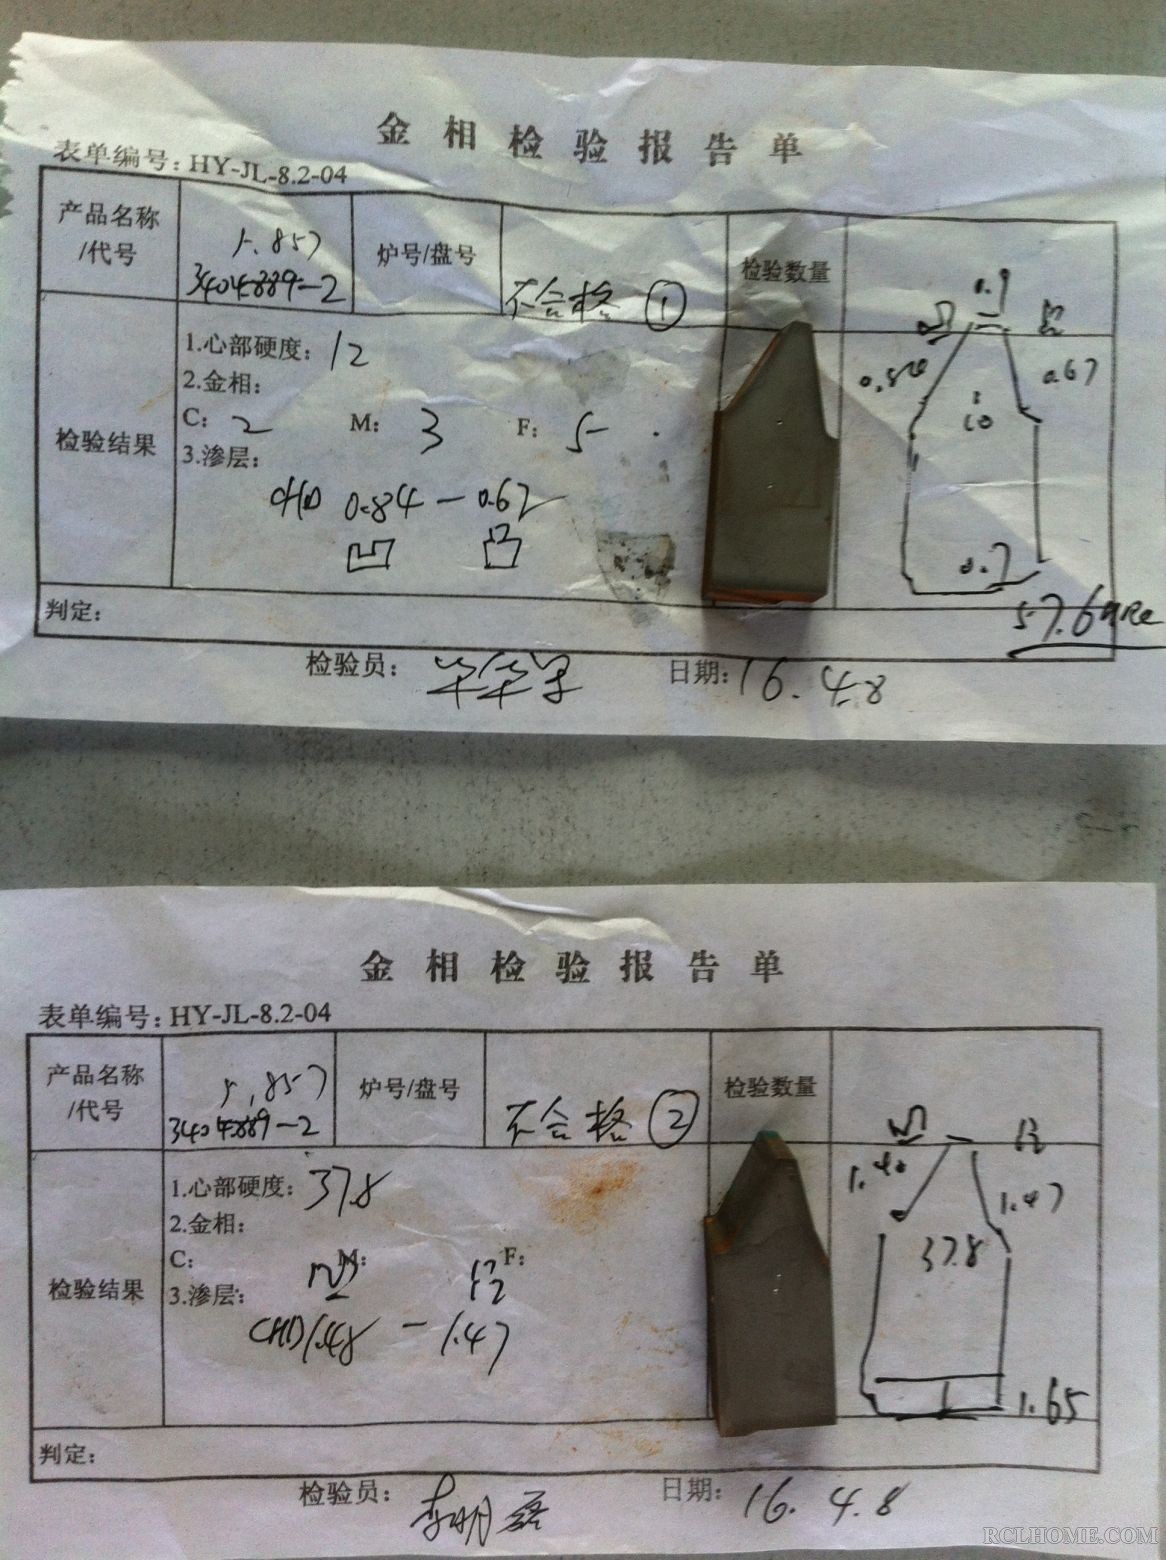 金相检验报告单
表单编号：HY-JL-8.2-04
产品名称/代号
3404889-2
炉号/盘号
不合格 ①
检验数量
检验结果
1.心部硬度：12
2.金相：
C：2 M：3 F：5
3.渗层：
CHD 0.84 — 0.62
凹 凸
0.9
凹 凸
0.67
10
0.7
判定：
检验员：
日期：16.4.8
金相检验报告单
表单编号：HY-JL-8.2-04
产品名称/代号
3404889-2
炉号/盘号
不合格 ②
检验数量
检验结果
1.心部硬度：37.8
2.金相：
C： M： F：
凹 凸
3.渗层：
CHD 1.48 — 1.47
凹 凸
1.47
37.8
1.65
判定：
检验员：
日期：16.4.8
RCLHOME.COM